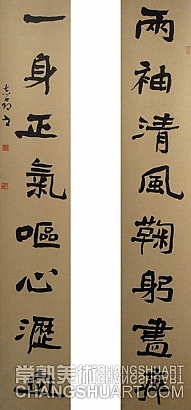 兩袖清風鞠躬盡瘁
一身正氣嘔心瀝血
常熟美術 CHANGSHUART.COM
CHANGSHUART.COM